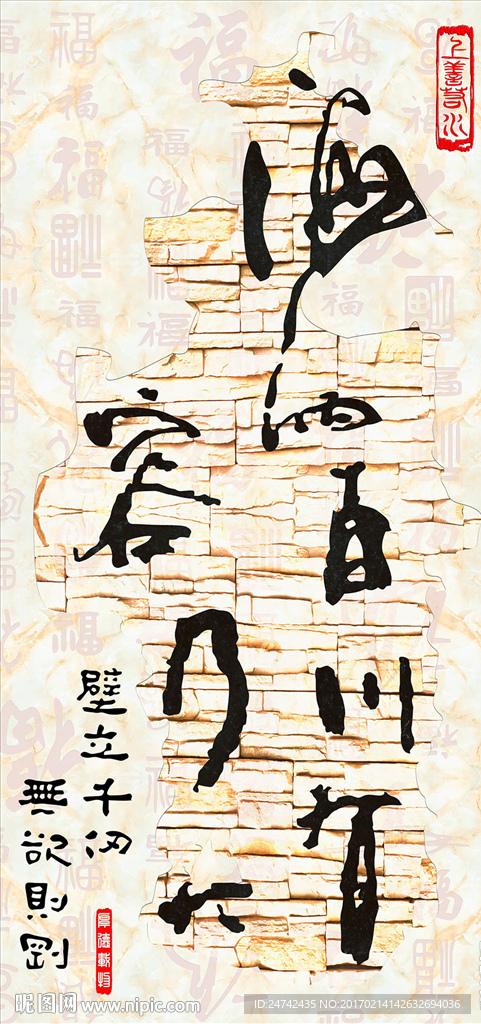 上善若水
海納百川有
容乃大
壁立千仞
無欲則剛
厚德載物
昵图网 www.nipic.com
ID:24742435 NO:20170214142632694036